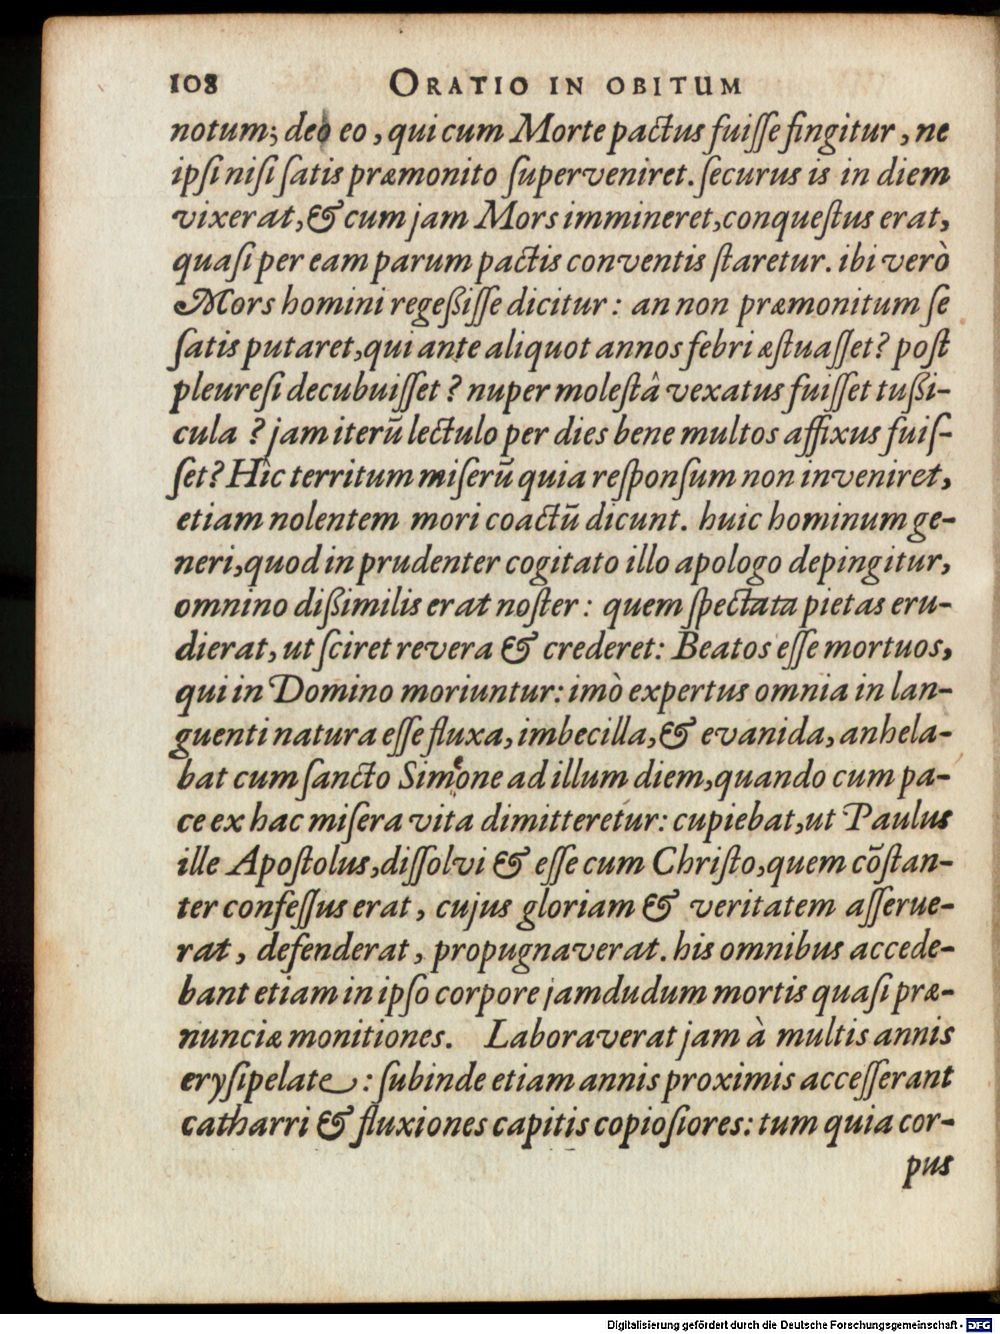 108 ORATIO IN OBITUM
notum; deo eo, qui cum Morte pactus fuiſſe fingitur, ne
ipſi niſi ſatis præmonito ſuperveniret. ſecurus is in diem
vixerat, & cum jam Mors immineret, conqueſtus erat,
quaſi per eam parum pactis conventis ſtaretur. ibi verò
Mors homini regeßiſſe dicitur: an non præmonitum ſe
ſatis putaret, qui ante aliquot annos febri æſtuaſſet? poſt
pleureſi decubuiſſet? nuper moleſtâ vexatus fuiſſet tußi-
cula? jam iterũ lectulo per dies bene multos affixus fuiſ-
ſet? Hîc territum miſerũ quia reſponſum non inveniret,
etiam nolentem mori coactũ dicunt. huic hominum ge-
neri, quod in prudenter cogitato illo apologo depingitur,
omnino dißimilis erat noſter: quem ſpectata pietas eru-
dierat, ut ſciret revera & crederet: Beatos eſſe mortuos,
qui in Domino moriuntur: imò expertus omnia in lan-
guenti natura eſſe fluxa, imbecilla, & evanida, anhela-
bat cum ſancto Simeone ad illum diem, quando cum pa-
ce ex hac miſera vita dimitteretur: cupiebat, ut Paulus
ille Apoſtolus, diſſolvi & eſſe cum Chriſto, quem cõſtan-
ter confeſſus erat, cujus gloriam & veritatem aſſerue-
rat, defenderat, propugnaverat. his omnibus accede-
bant etiam in ipſo corpore jamdudum mortis quaſi præ-
nunciæ monitiones. Laboraverat jam à multis annis
eryſipelate: ſubinde etiam annis proximis acceſſerant
catharri & fluxiones capitis copioſiores: tum quia cor-
pus
Digitalisierung gefördert durch die Deutsche Forschungsgemeinschaft - DFG